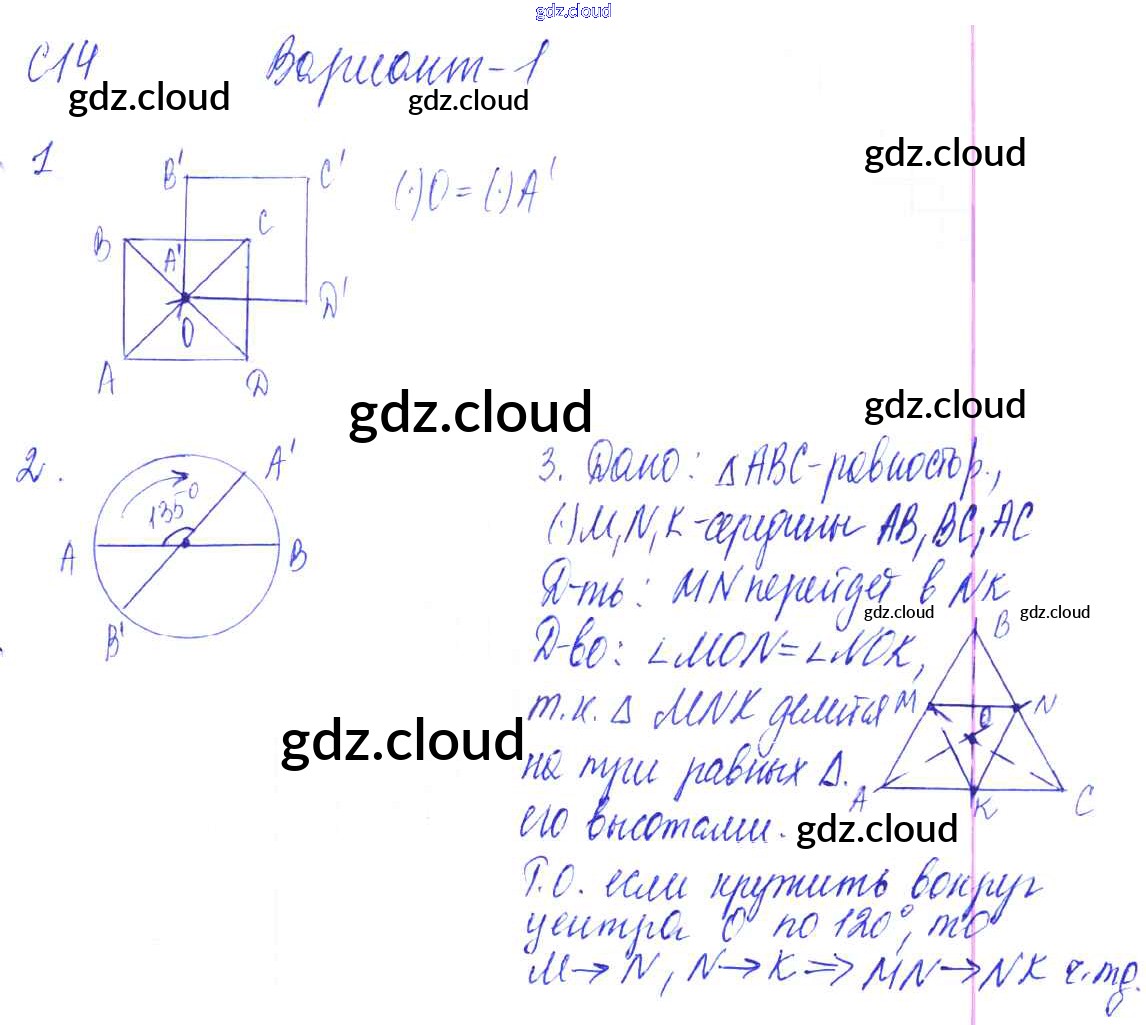 gdz.cloud
С14 Вариант-1
gdz.cloud gdz.cloud
gdz.cloud
1
B' C' (·)O = (·)A'
B C A'
O D'
A D
gdz.cloud gdz.cloud
2.
A' 135° A B B'
3. Дано: △ABC-равностор.,
(·)M,N,K-середины AB,BC,AC
Д-ть: MN перейдет в NK
gdz.cloud gdz.cloud
Д-во: ∠MON=∠NOK,
т.к. △ MNK делится
на три равных △.
его высотами.
B
M N
O
A K C
gdz.cloud
gdz.cloud
Т.О. если крутить вокруг
центра O по 120°, то
M→N, N→K⇒MN→NK ч.тд.